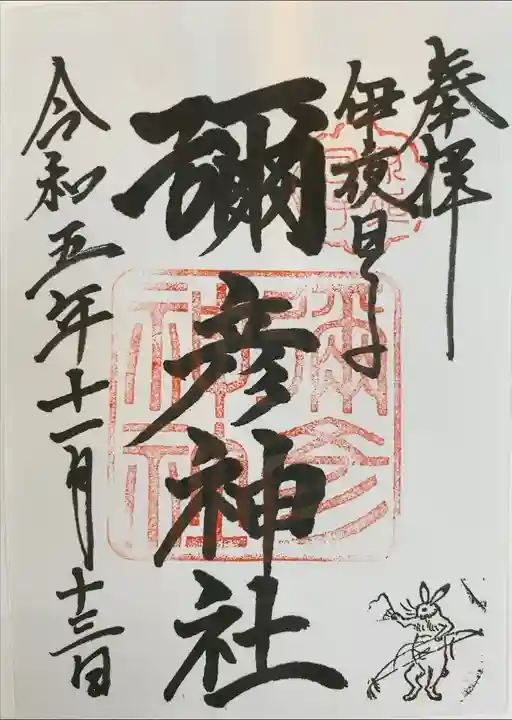 奉拝
伊夜日子
彌彦神社
彌彦
神社
令和五年十一月十三日